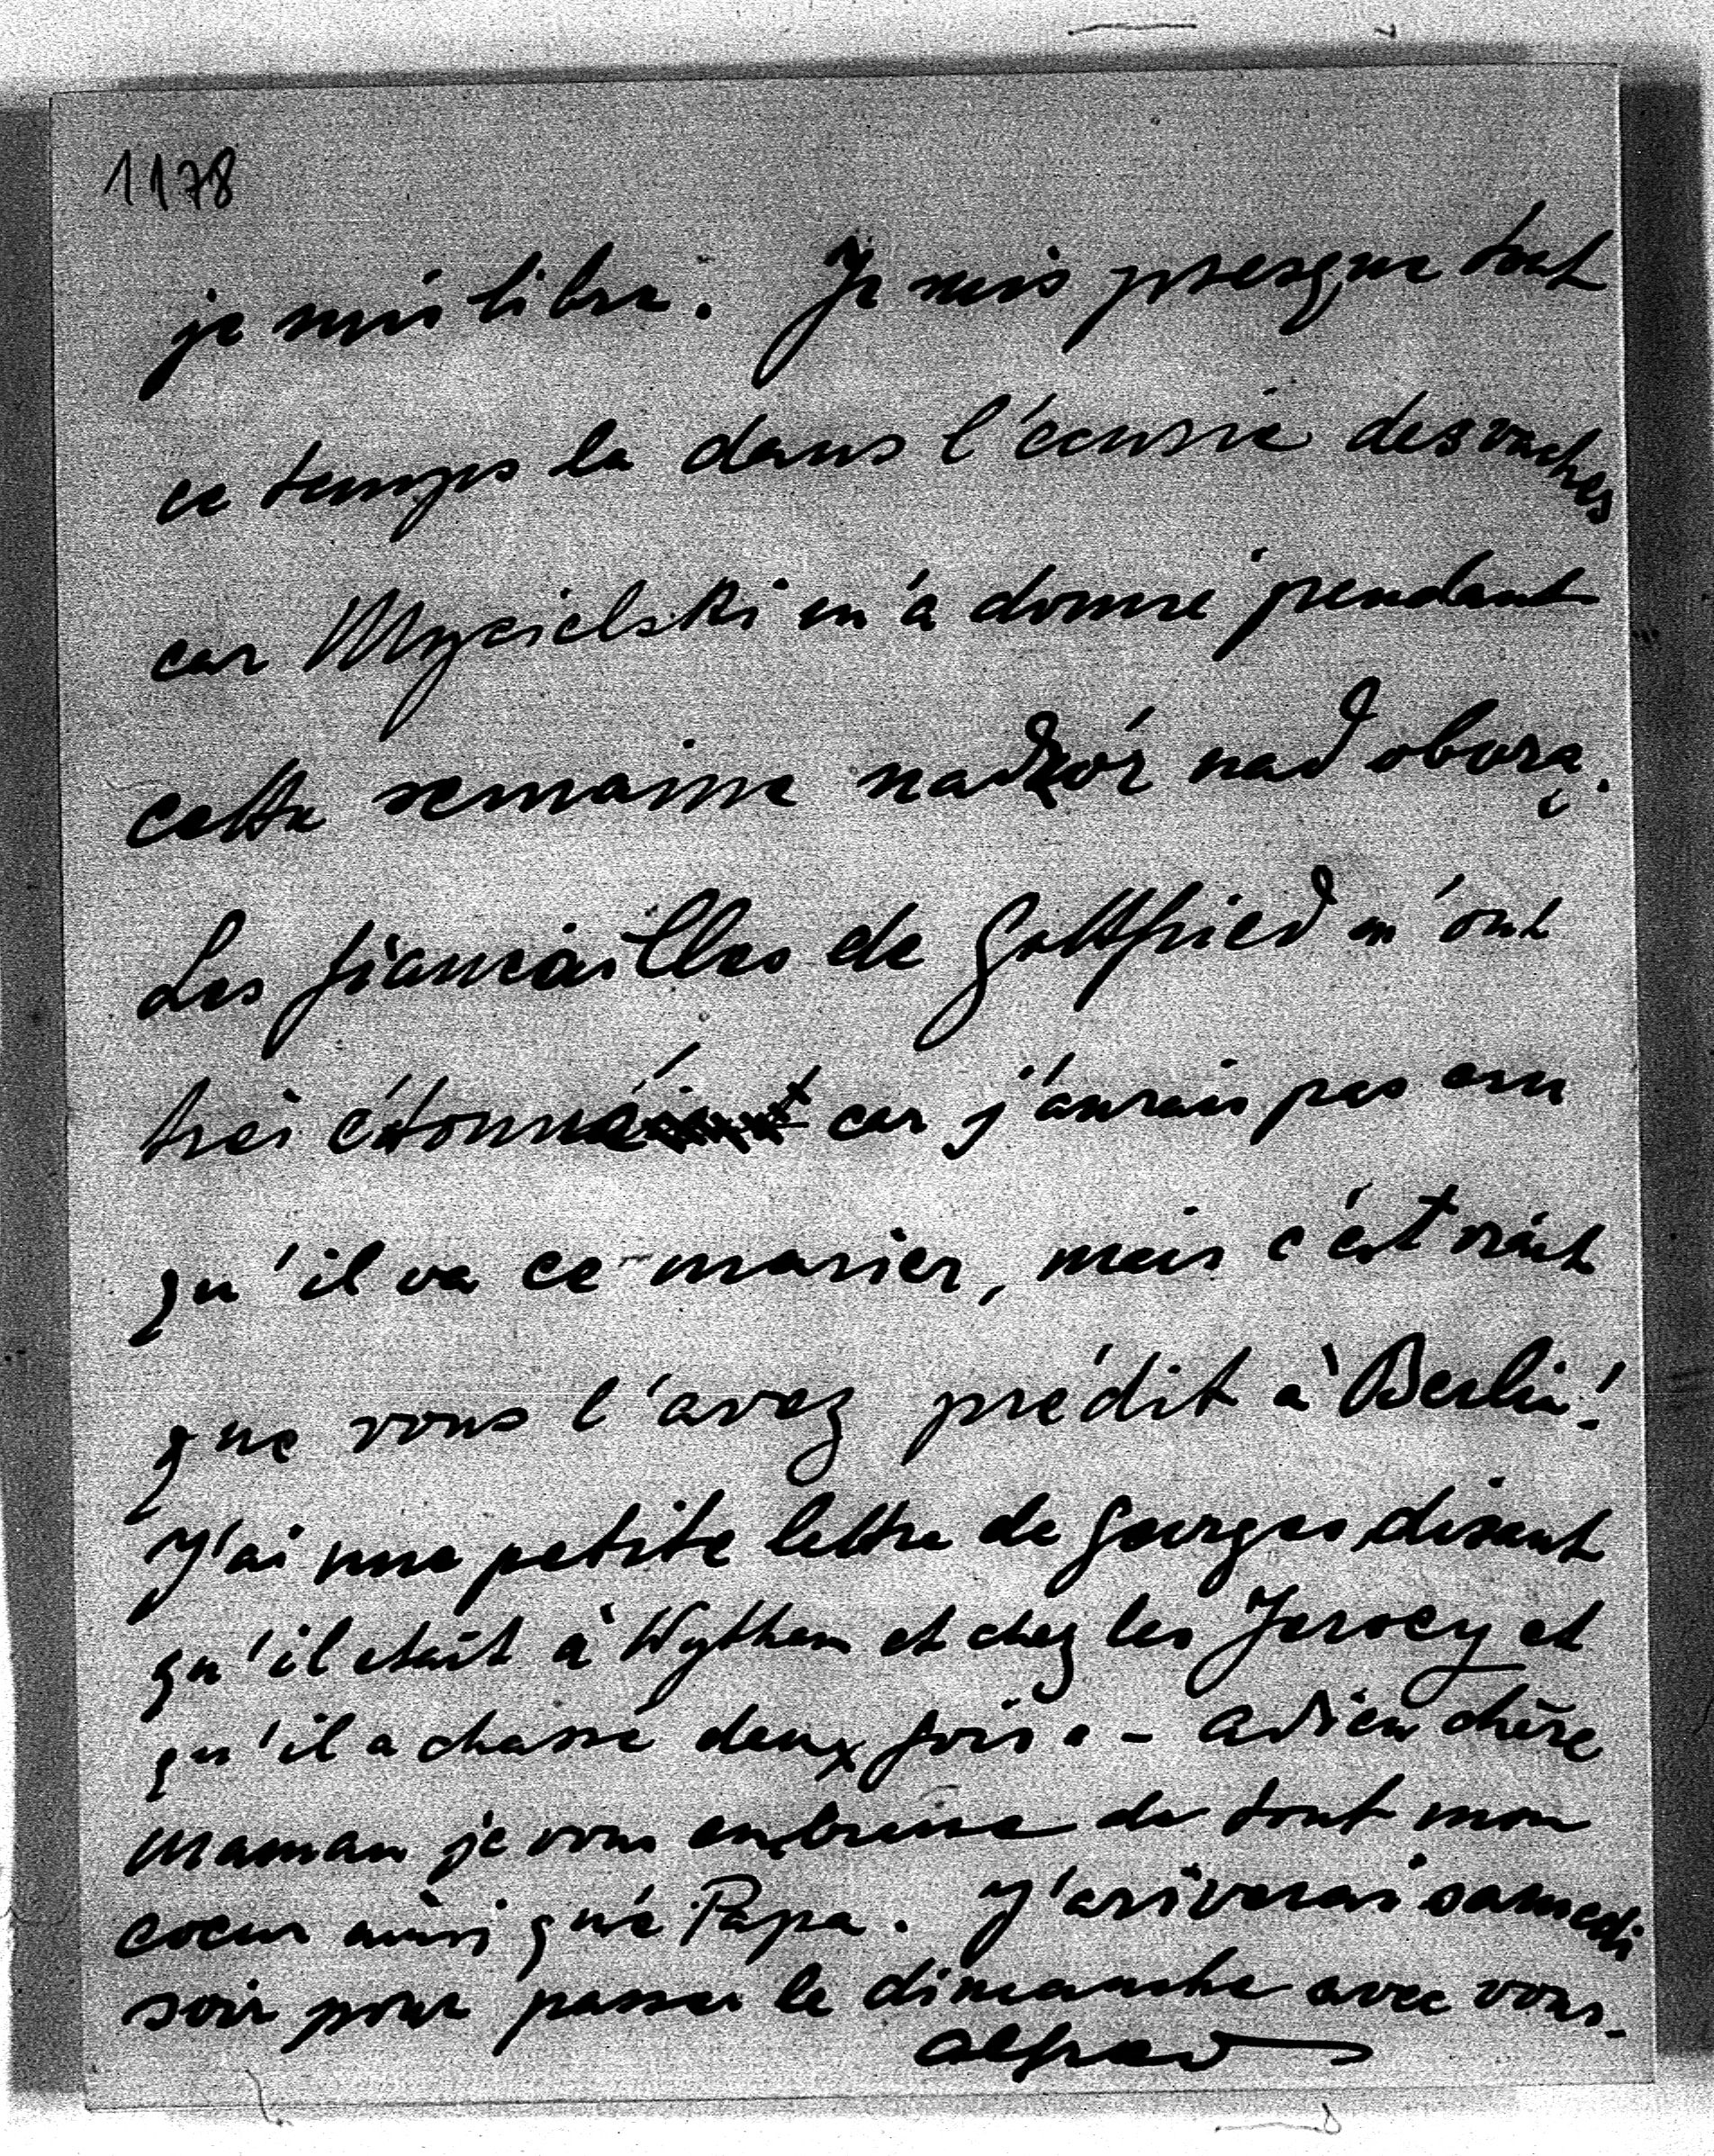 1178
je suis libre. Je suis presque tout
ce temps la dans l'écurie des vaches
car Mycielski m'a donné pendant
cette semaine nadzór nad oborą.
Les fiancailles de Gottfried m'ont
très étonné car j'aurais pas cru
qu'il va ce marier, mais c'est
que vous l'avez prédit à Berlin!
J'ai une petite lettre de Georges disant
qu'il etait à Wytham et chez les Jersey et
qu'il a chassé deux fois. - Adieu chère
Maman je vous embrasse de tout mon
coeur ainsi que Papa. J'ariverai samedi
soir pour passer le dimanche avec vous.
Alfred